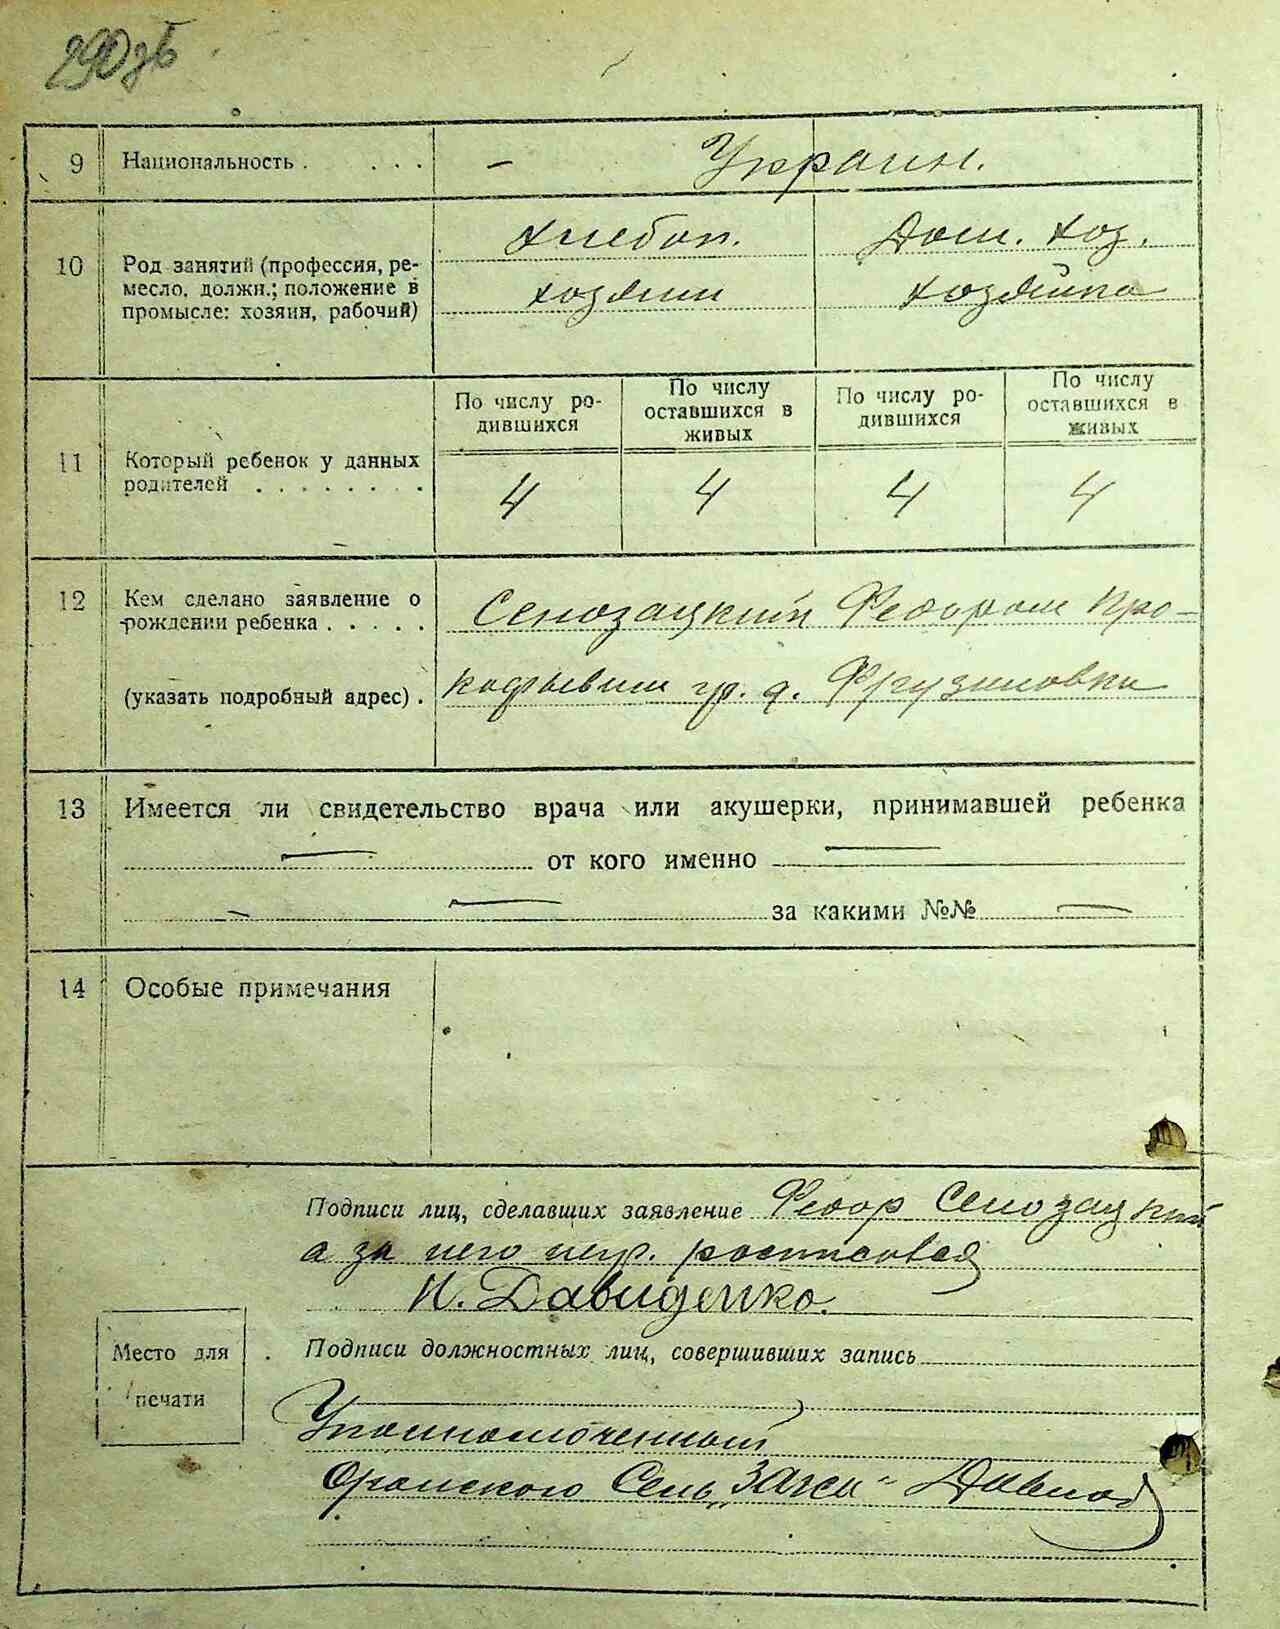 290 зв
9 Национальность . . . . - Украин.
10 Род занятий (профессия, ре-
месло, должн.; положение в
промысле: хозяин, рабочий)
Хлебоп. Дом. хоз.
хозяин хозяйка
11 Который ребенок у данных
родителей . . . . . . . .
По числу ро-
дившихся
По числу
оставшихся в
живых
По числу ро-
дившихся
По числу
оставшихся в
живых
4 4 4 4
12 Кем сделано заявление о
рождении ребенка . . . . .
(указать подробный адрес) .
Сенозацкий Федором Про-
кофьевим гр. д. Фрузиновки
13 Имеется ли свидетельство врача или акушерки, принимавшей ребенка
— от кого именно —
— за какими №№ —
14 Особые примечания
Подписи лиц, сделавших заявление Федор Сенозацкий
а за него негр. росписовся
Давиденко.
Место для
печати
Подписи должностных лиц, совершивших запись
Уполномоченный
Оранского Сель „ЗАГСа"